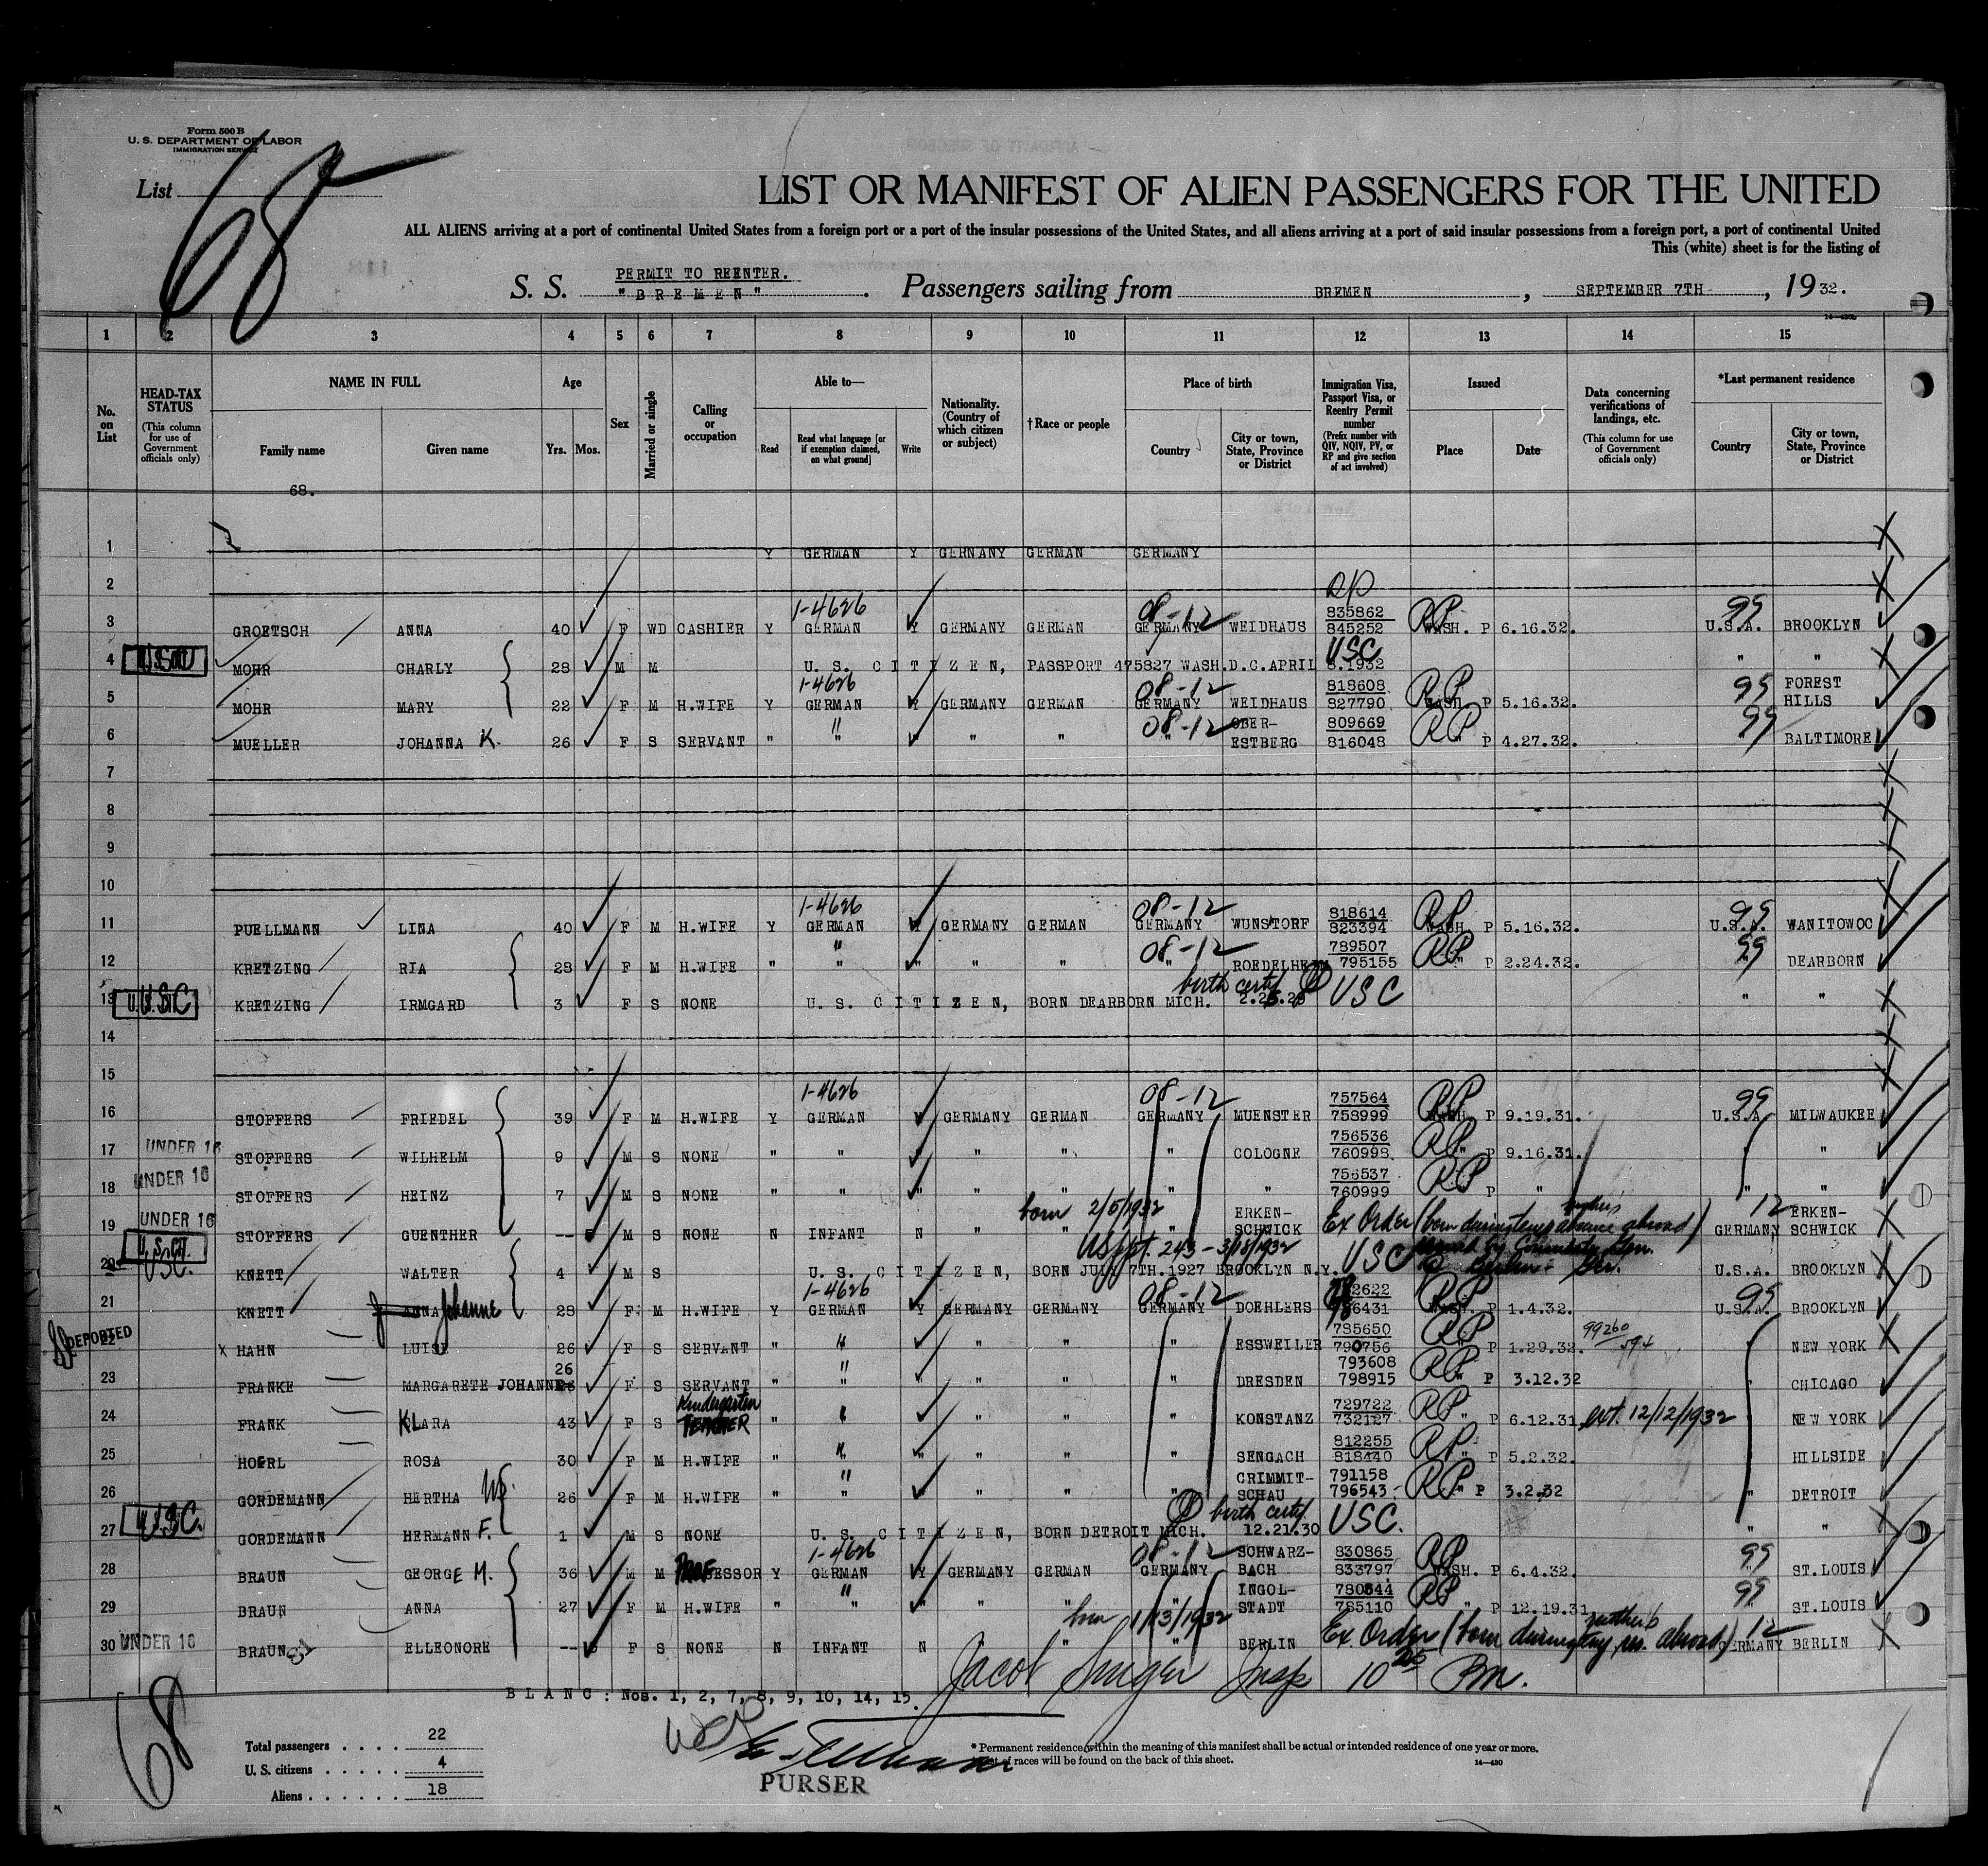 Form 500 B
U. S. DEPARTMENT OF LABOR
IMMIGRATION SERVICE
List 68
LIST OR MANIFEST OF ALIEN PASSENGERS FOR THE UNITED
ALL ALIENS arriving at a port of continental United States from a foreign port or a port of the insular possessions of the United States, and all aliens arriving at a port of said insular possessions from a foreign port, a port of continental United
This (white) sheet is for the listing of
PERMIT TO REENTER.
S. S. "BREMEN" . Passengers sailing from BREMEN , SEPTEMBER 7TH , 1932.
1 2 3 4 5 6 7 8 9 10 11 12 13 14 15
No. on List
HEAD-TAX STATUS (This column for use of Government officials only)
NAME IN FULL Family name Given name
Age Yrs. Mos.
Sex
Married or single
Calling or occupation
Able to— Read Read what language [or if exemption claimed, on what ground] Write
Nationality. (Country of which citizen or subject)
†Race or people
Place of birth Country City or town, State, Province or District
Immigration Visa, Passport Visa, or Reentry Permit number (Prefix number with QIV, NQIV, PV, or RP and give section of act involved)
Issued Place Date
Data concerning verifications of landings, etc. (This column for use of Government officials only)
*Last permanent residence Country City or town, State, Province or District
68.
1 Y GERMAN Y GERNANY GERMAN GERMANY
2
1-4626 08-12 RP 835862 RP 99
3 GROETSCH ANNA 40 F WD CASHIER Y GERMAN Y GERMANY GERMAN GERMANY WEIDHAUS 845252 WASH. P 6.16.32. U.S.A. BROOKLYN
4 MOHR CHARLY 28 M M U. S. CITIZEN, PASSPORT 475827 WASH.D.C.APRIL 8.1932 USC " "
1-4626 08-12 818608 RP 99 FOREST
5 MOHR MARY 22 F M H.WIFE Y GERMAN Y GERMANY GERMAN GERMANY WEIDHAUS 827790 WASH. P 5.16.32. HILLS
" 08-12 OBER- 809669 RP 99
6 MUELLER JOHANNA K. 26 F S SERVANT " " " " " " ESTBERG 816048 " P 4.27.32. " BALTIMORE
7
8
9
10
1-4626 08-12 818614 RP 99
11 PUELLMANN LINA 40 F M H.WIFE Y GERMAN Y GERMANY GERMAN GERMANY WUNSTORF 823394 WASH. P 5.16.32. U.S.A. WANITOWOC
" 08-12 789507 RP 99
12 KRETZING RIA 28 F M H.WIFE " " " " " " ROEDELHEIM 795155 " P 2.24.32. DEARBORN
birth certf
13 USC KRETZING IRMGARD 3 F S NONE U. S. CITIZEN, BORN DEARBORN MICH. USC " "
14
15
1-4626 08-12 757564 RP 99
16 STOFFERS FRIEDEL 39 F M H.WIFE Y GERMAN Y GERMANY GERMAN GERMANY MUENSTER 758999 WASH. P 9.19.31. U.S.A. MILWAUKEE
UNDER 16 756536 RP
17 STOFFERS WILHELM 9 M S NONE " " " " " " COLOGNE 760998 " P 9.16.31. " "
UNDER 16 756537 RP
18 STOFFERS HEINZ 7 M S NONE " " " " " " " 760999 P " " "
UNDER 16 born 2/5/1932 ERKEN- Ex Order (born during temp absence abroad) 12 ERKEN-
19 STOFFERS GUENTHER -- M S NONE N INFANT N " " " SCHWICK GERMANY SCHWICK
US ppt. 243 - 3/18/1932
20 USC. KNETT WALTER 4 M S U. S. CITIZEN, BORN JULY 7TH.1927 BROOKLYN N.Y. USC U.S.A. BROOKLYN
1-4626 08-12 RP 99
21 KNETT ANNA Johanne 29 F M H.WIFE Y GERMAN Y GERMANY GERMANY GERMANY DOEHLERS WASH. P 1.4.32. U.S.A. BROOKLYN
DEPORTED 785650 RP 99260
22 x HAHN LUISE 26 F S SERVANT " " " " " " ESSWEILER 790756 " P 1.29.32. 594 " NEW YORK
26 793608 RP
23 FRANKE MARGARETE JOHANNE F S SERVANT " " " " " " DRESDEN 798915 " P 3.12.32 " CHICAGO
Kindergarten 729722 RP
24 FRANK KLARA 43 F S TEACHER " " " " " " KONSTANZ 732127 " P 6.12.31. ext. 12/12/1932 " NEW YORK
812255 RP
25 HOERL ROSA 30 F M H.WIFE " " " " " " SENGACH 818440 " P 5.2.32. HILLSIDE
CRIMMIT- 791158 RP
26 GORDEMANN HERTHA W. 26 F M H.WIFE " " " " " " SCHAU 796543 " P 3.2.32 " DETROIT
birth certf.
27 USC. GORDEMANN HERMANN F. 1 M S NONE U. S. CITIZEN, BORN DETROIT MICH. 12.21.30 USC. " "
1-4626 08-12 SCHWARZ- 830865 RP 99
28 BRAUN GEORGE M. 36 M M PROFESSOR Y GERMAN Y GERMANY GERMAN GERMANY BACH 833797 WASH. P 6.4.32. ST.LOUIS
" INGOL- 780844 RP 99
29 BRAUN ANNA 27 F M H.WIFE " " " " " " STADT 785110 " P 12.19.31 ST.LOUIS
UNDER 16 born 1/13/1932 Ex Order (born during temp res. abroad) 12
30 BRAUN ELLEONORE -- F S NONE N INFANT N " " " BERLIN GERMANY BERLIN
Jacob Singer Insp 10 Pm.
BLANC: Nos. 1, 2, 7, 8, 9, 10, 14, 15.
68
Total passengers . . . . 22
U. S. citizens . . . . . 4
Aliens . . . . . . 18
PURSER
* Permanent residence within the meaning of this manifest shall be actual or intended residence of one year or more.
List of races will be found on the back of this sheet.
14—430